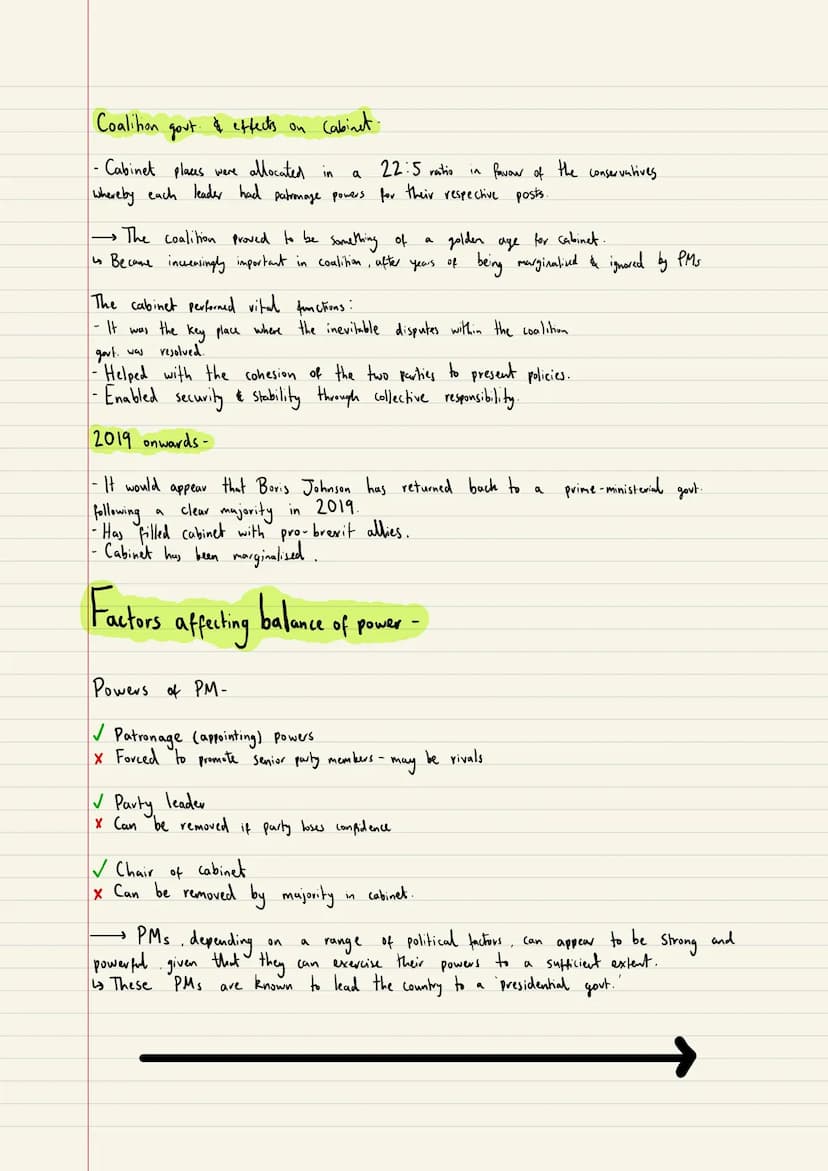 Coalition govt. & effects on Cabinet-
- Cabinet places were allocated in a 22:5 ratio in favour of the conservatives
whereby each leader had patronage powers for their respective posts.
→ The coalition proved to be something of a golden age for cabinet.
↳ Became increasingly important in coalition, after years of being marginalised & ignored by PMs
The cabinet performed vital functions:
- It was the key place where the inevitable disputes within the coalition
govt. was resolved.
- Helped with the cohesion of the two parties to present policies.
- Enabled security & stability through collective responsibility.
2019 onwards-
- It would appear that Boris Johnson has returned back to a prime-ministerial govt.
following a clear majority in 2019.
- Has filled cabinet with pro-brexit allies.
- Cabinet has been marginalised.
Factors affecting balance of power -
Powers of PM-
✓ Patronage (appointing) powers
x Forced to promote senior party members - may be rivals
✓ Party leader
x Can be removed if party loses confidence
✓ Chair of cabinet
x Can be removed by majority in cabinet.
→ PMs, depending on a range of political factors, can appear to be strong and
powerful, given that they can exercise their powers to a sufficient extent.
↳ These PMs are known to lead the country to a 'presidential govt.'